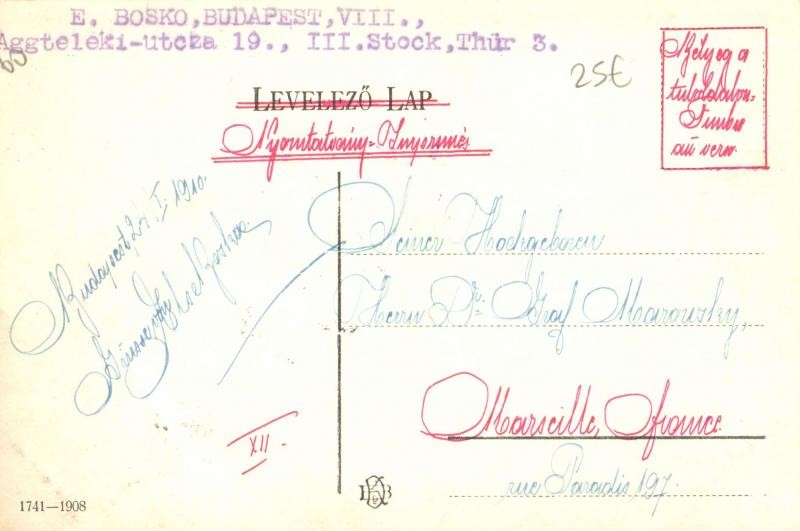 E. BOSKO, BUDAPEST, VIII.,
Aggteleki-utcza 19., III. Stock, Thür 3.
25€
LEVELEZŐ LAP
Nyomtatvány=Imprimés
Bélyeg a
tuloldalon=
Timbre
au verso.
Budapest 27. I. 1910.
Bosko
Seiner Hochgeboren
Herrn Dr. Graf Marouzky,
Marseille, France
rue Paradis 197.
XII.
1741—1908